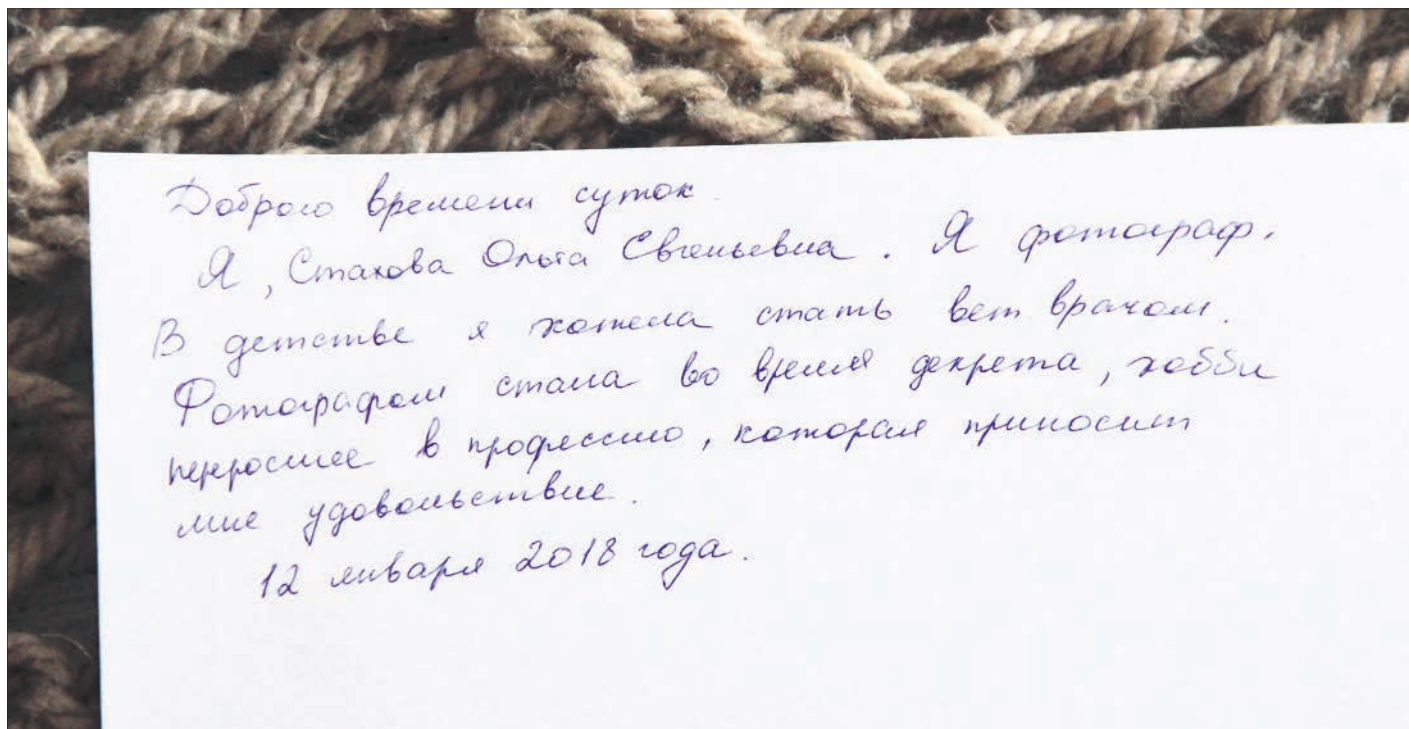 Доброго времени суток.
Я, Стахова Ольга Евгеньевна. Я фотограф.
В детстве я хотела стать вет врачом.
Фотографом стала во время декрета, хобби
переросшее в профессию, которая приносит
мне удовольствие.
12 января 2018 года.